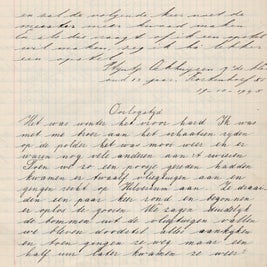 en zal de volgende keer met de
maken
en als die vraagt of ik een opstel
wil maken, zeg ik ha lekker
een opstel
Oorlogstijd
Het was winter het vroor hard Ik was
met me broer aan het schaatsen ryden
op de polder het was mooi weer en er
waren nog vele anderen aan 't zwieren
Toen we zo een poosje gereden hadden
kwamen er twaalf vliegtuigen aan en
gingen recht op Hilversum aan Ze draai
den een paar keer rond en begonnen
er op los te gooien We zagen duidelyk
de bommen uit de vliegtuigen vallen
we bleven doodstil alles aankyken
en toen gingen ze weg maar een
half uur later kwamen ze weer